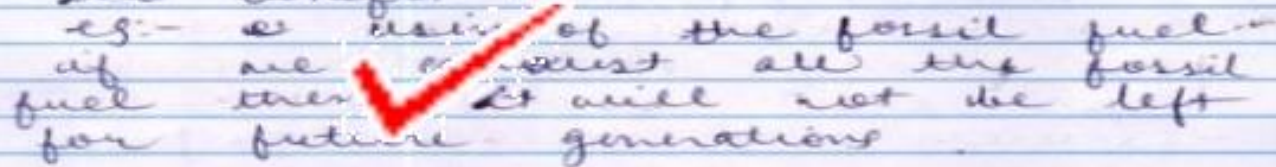 eg:- using of the fossil fuel -
if we exhaust all the fossil
fuel then it will not be left
for future generations